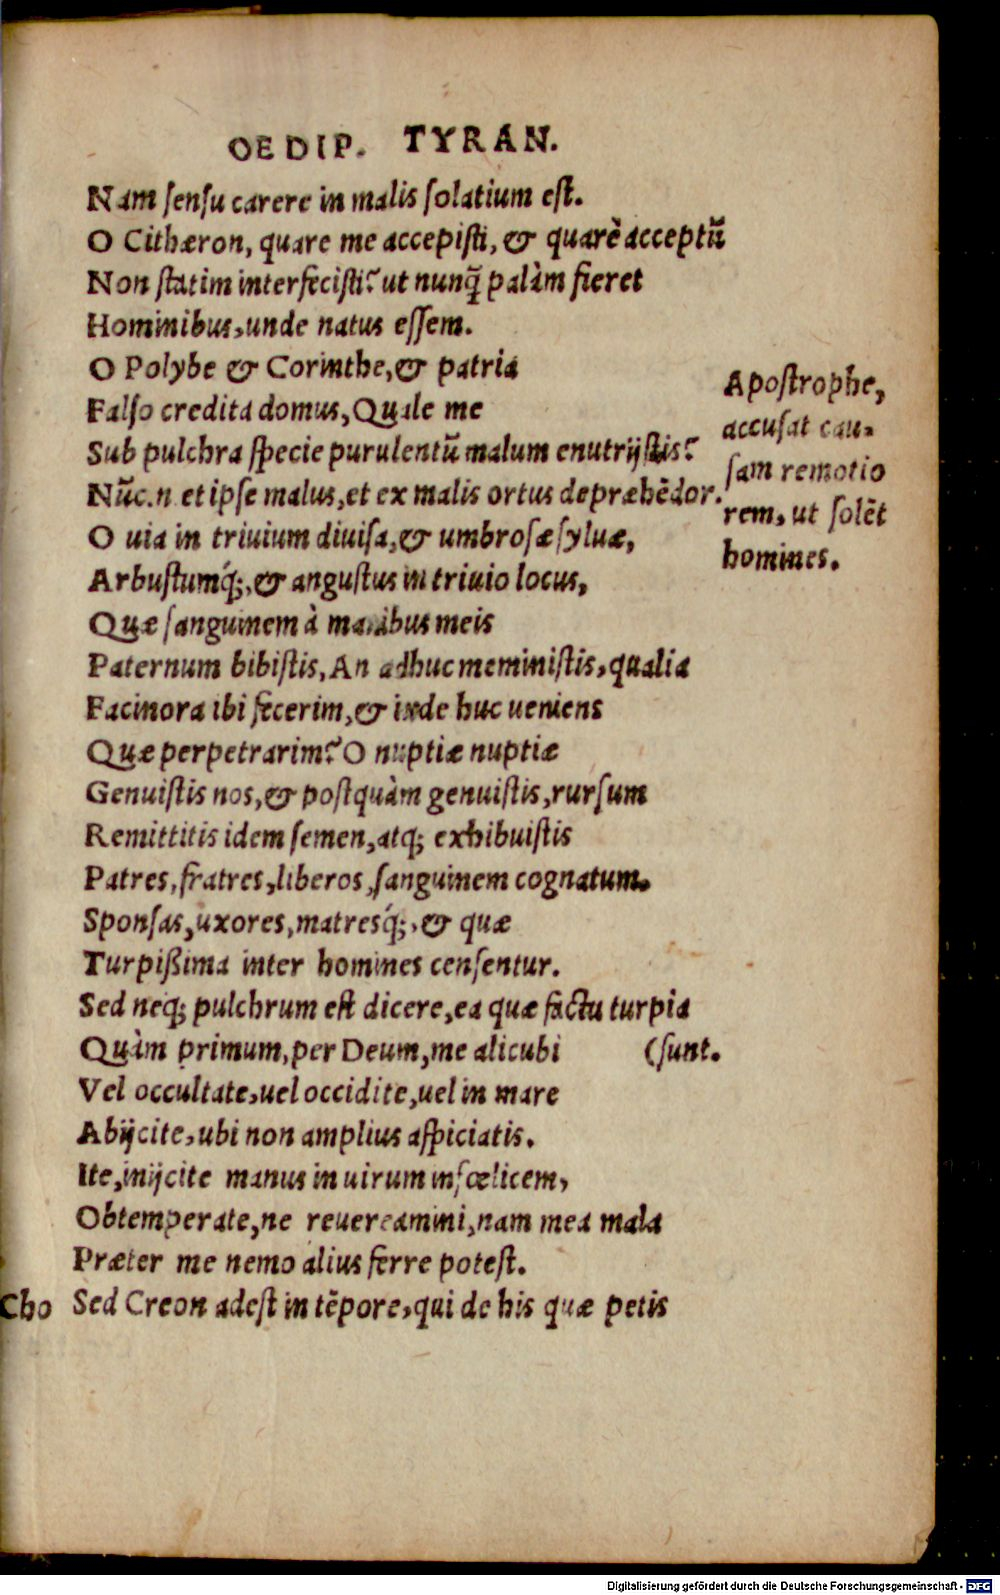 OEDIP. TYRAN.
Nam ſenſu carere in malis ſolatium eſt.
O Cithæron, quare me accepiſti, & quarē acceptū
Non ſtatim interfeciſti? ut nunq̃ palàm fieret
Hominibus, unde natus eſſem.
O Polybe & Corinthe, & patria
Falſo credita domus, Quale me
Sub pulchra ſpecie purulentū malum enutrijſtis?
Nūc.n et ipſe malus, et ex malis ortus depræhēdor.
O uia in triuium diuiſa, & umbroſæ ſyluæ,
Arbuſtumq́;, & anguſtus in triuio locus,
Quæ ſanguinem à manibus meis
Paternum bibiſtis, An adhuc meminiſtis, qualia
Facinora ibi fecerim, & inde huc ueniens
Quæ perpetrarim? O nuptiæ nuptiæ
Genuiſtis nos, & poſtquàm genuiſtis, rurſum
Remittitis idem ſemen, atq; exhibuiſtis
Patres, fratres, liberos, ſanguinem cognatum.
Sponſas, uxores, matresq́;, & quæ
Turpißima inter homines cenſentur.
Sed neq; pulchrum eſt dicere, ea quæ factu turpia
Quàm primum, per Deum, me alicubi (ſunt.
Vel occultate, uel occidite, uel in mare
Abijcite, ubi non amplius aſpiciatis.
Ite, inijcite manus in uirum infœlicem,
Obtemperate, ne reuereamini, nam mea mala
Præter me nemo alius ferre poteſt.
Cho Sed Creon adeſt in tēpore, qui de his quæ petis
Apoſtrophe,
accuſat cau-
ſam remotio
rem, ut ſolēt
homines.
Digitalisierung gefördert durch die Deutsche Forschungsgemeinschaft - DFG